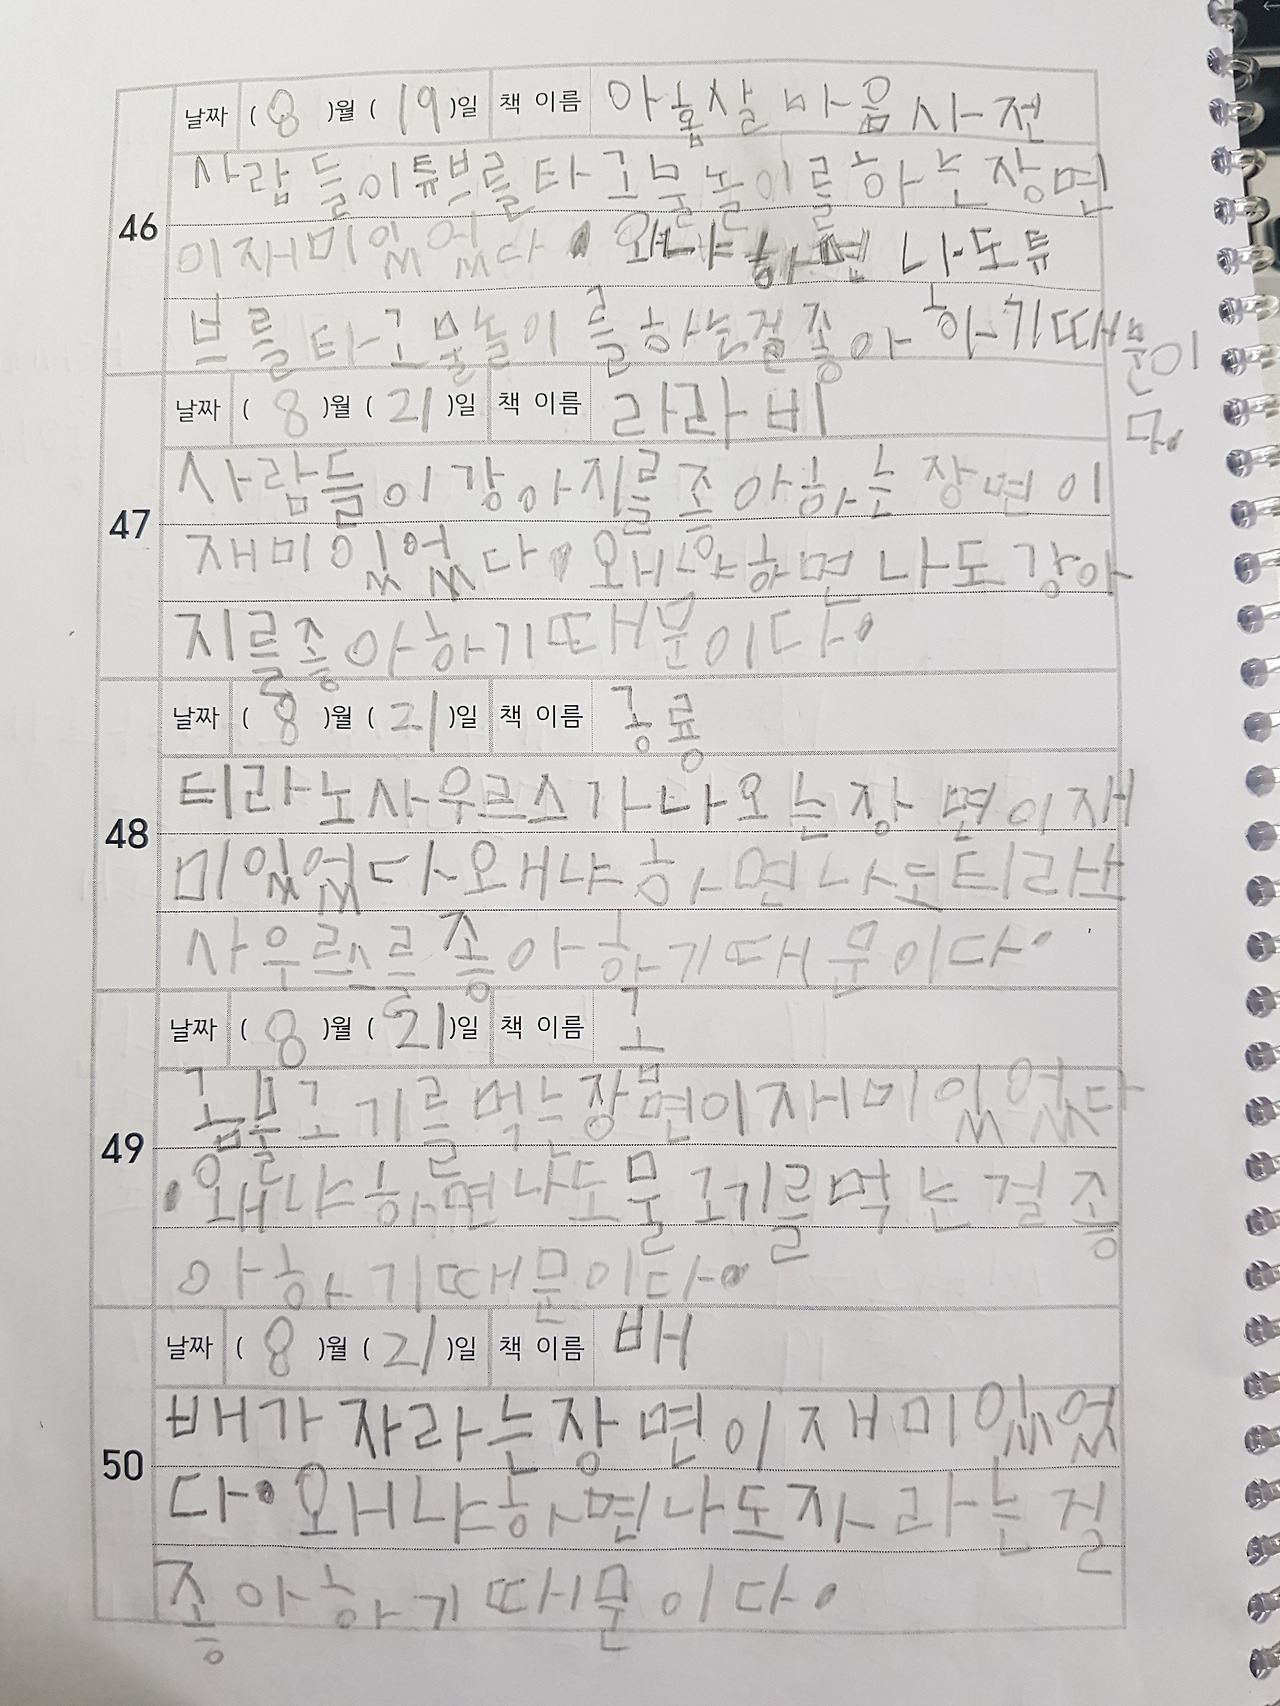 날짜 ( 8 )월 ( 19 )일 책 이름 아홉살 마음 사전
46
사람들이튜브를타고물놀이를하는장면
이재미있었다. 왜냐하면 나도튜
브를타고물놀이를하는걸좋아하기때문이
다.
날짜 ( 8 )월 ( 21 )일 책 이름 라라비
47
사람들이강아지를좋아하는장면이
재미있었다. 왜냐하면나도강아
지를좋아하기때문이다.
날짜 ( 8 )월 ( 21 )일 책 이름 공룡
48
티라노사우르스가나오는장면이재
미있었다 왜냐하면나도티라노
사우르스르좋아하기때문이다.
날짜 ( 8 )월 ( 21 )일 책 이름 곰
49
곰물고기를먹는장면이재미있었다
. 왜냐하면나도물고기를먹는걸좋
아하기때문이다.
날짜 ( 8 )월 ( 21 )일 책 이름 배
50
배가자라는장면이재미있었
다. 왜냐하면나도자라는걸
좋아하기때문이다.